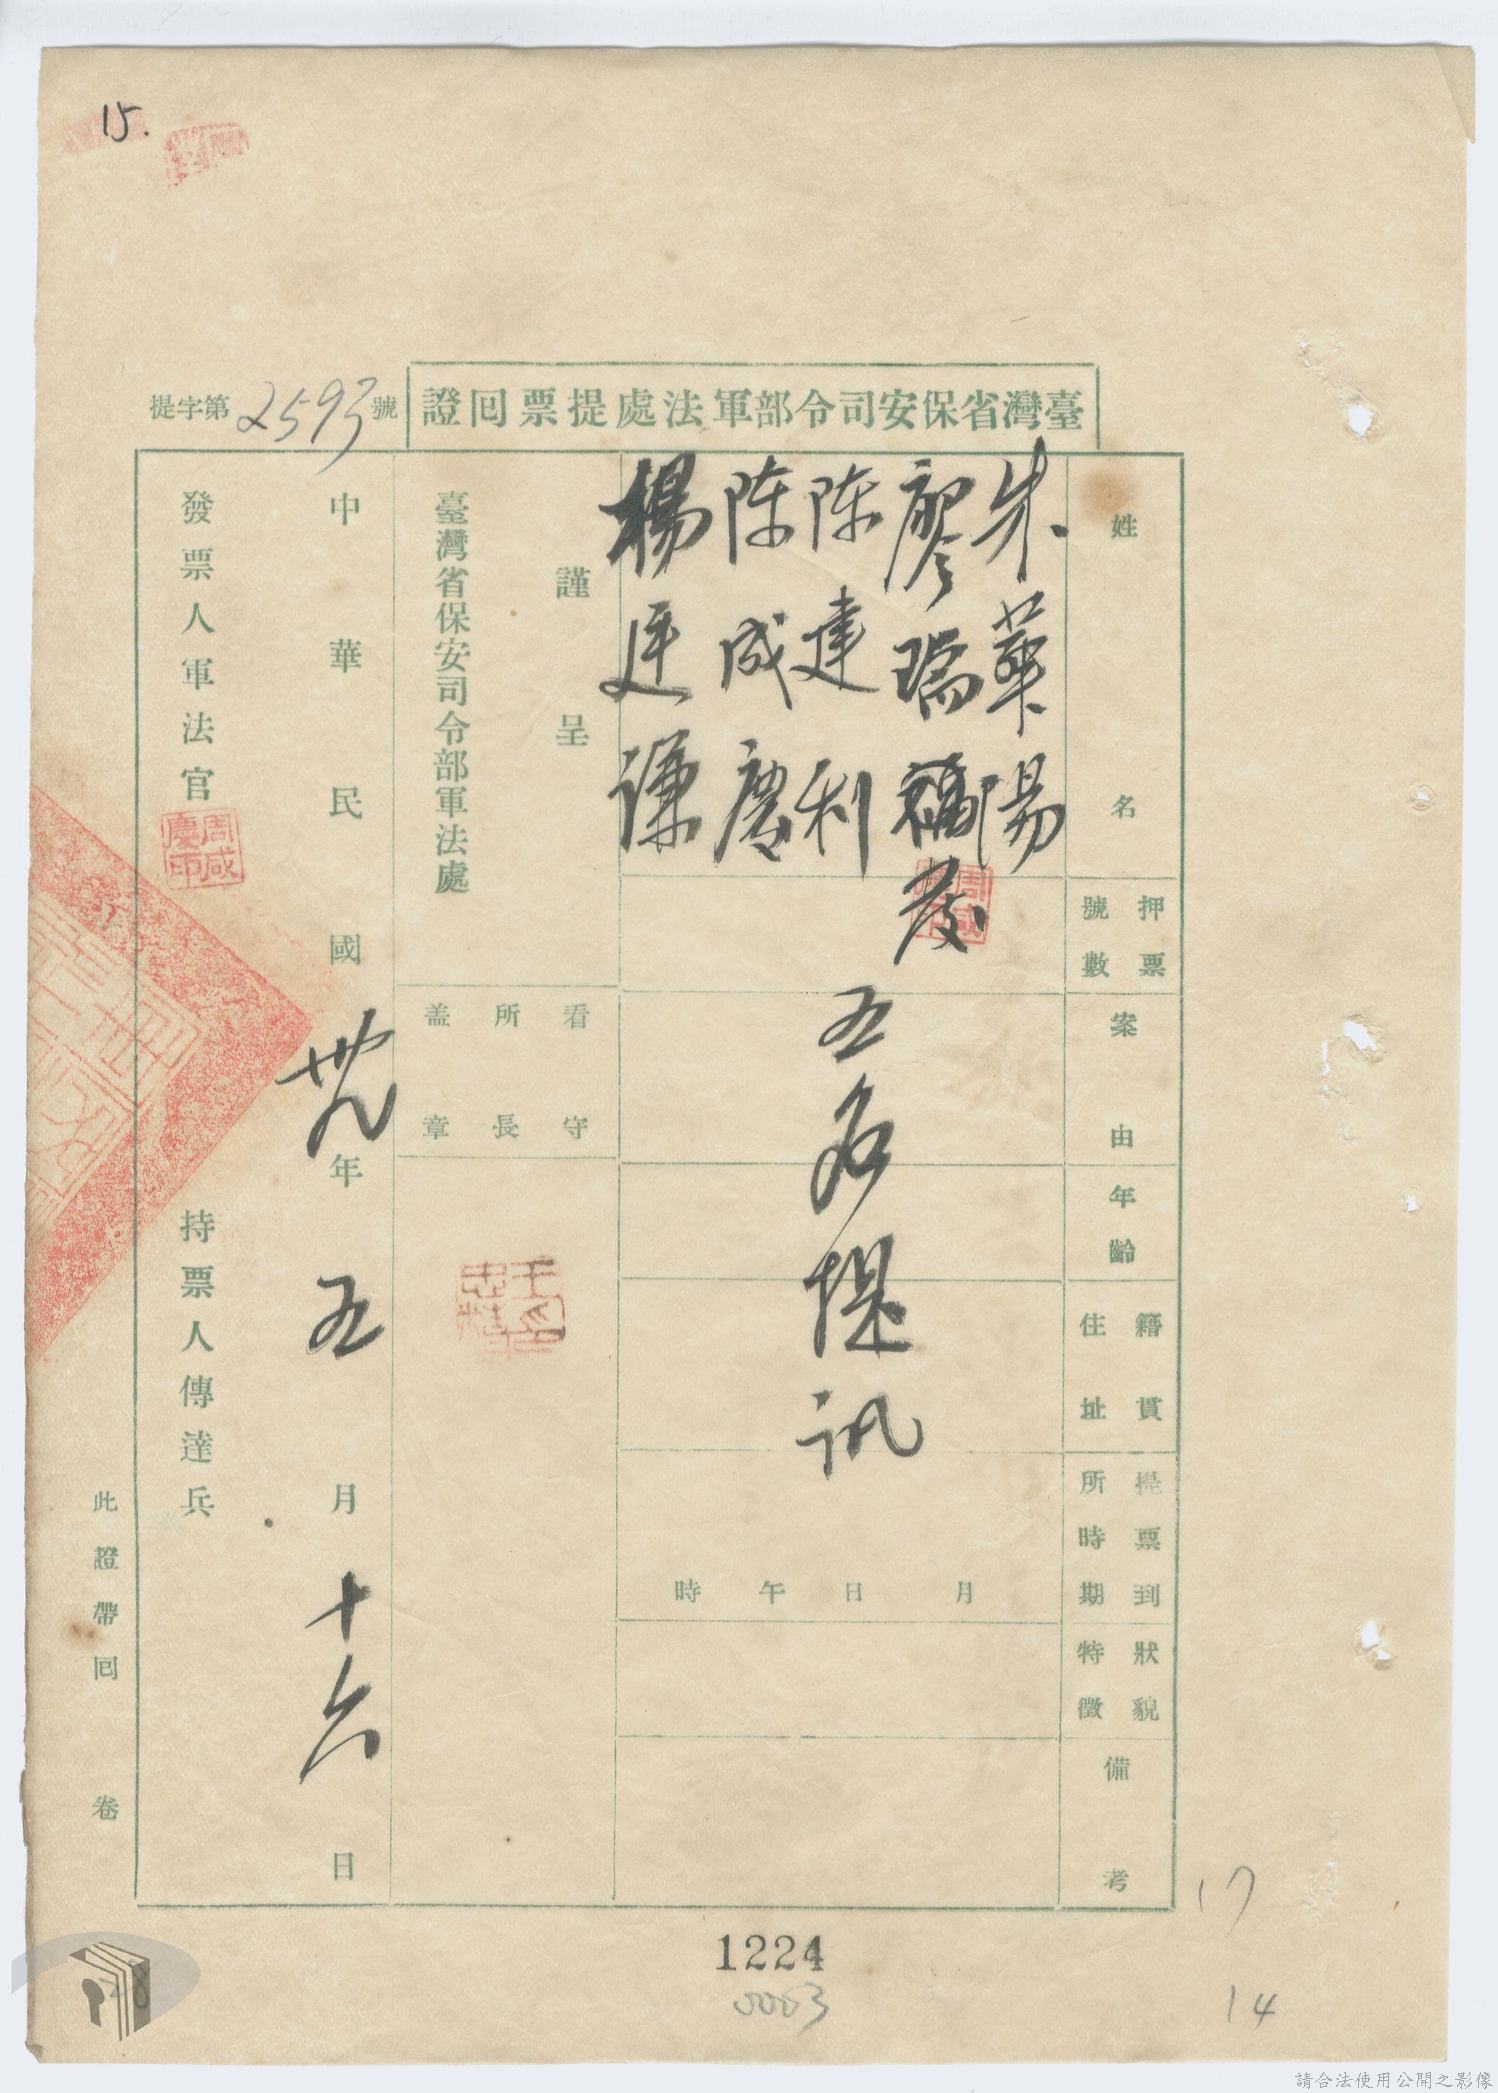 15.
臺灣省保安司令部軍法處提票囘證
提字第2593號
姓名
押票號數
案由
年齡
籍貫住址
提票到所時期
狀貌特徵
備考
朱華陽
廖瑞發
陈達利
陈成慶
楊廷謙
五名提訊
月日午時
謹呈
臺灣省保安司令部軍法處
看守所長盖章
中華民國卅九年五月十六日
發票人軍法官
周咸慶印
持票人傳達兵
此證帶囘卷
17
1224
0063
14
請合法使用公開之影像